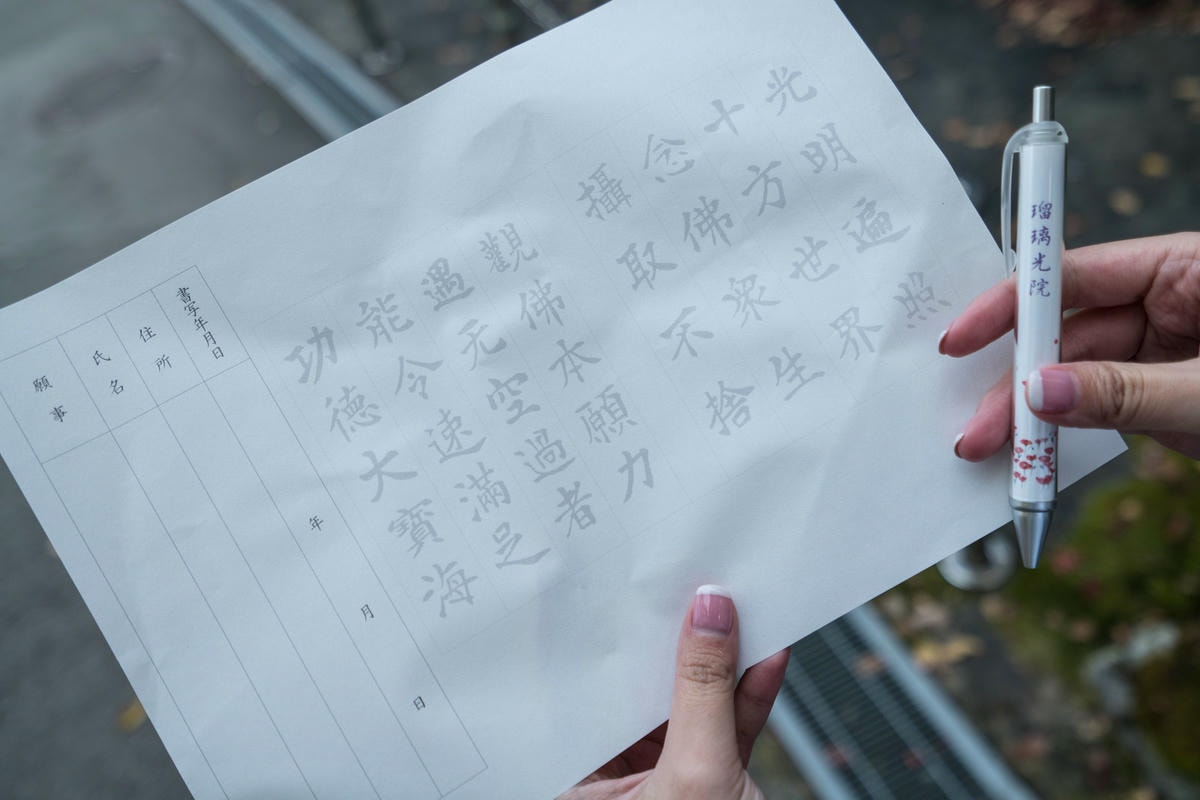 光明遍照
十方世界
念佛衆生
攝取不捨
觀佛本願力
遇无空過者
能令速滿足
功德大寶海
書写年月日
年 月 日
住所
氏名
願事
瑠璃光院